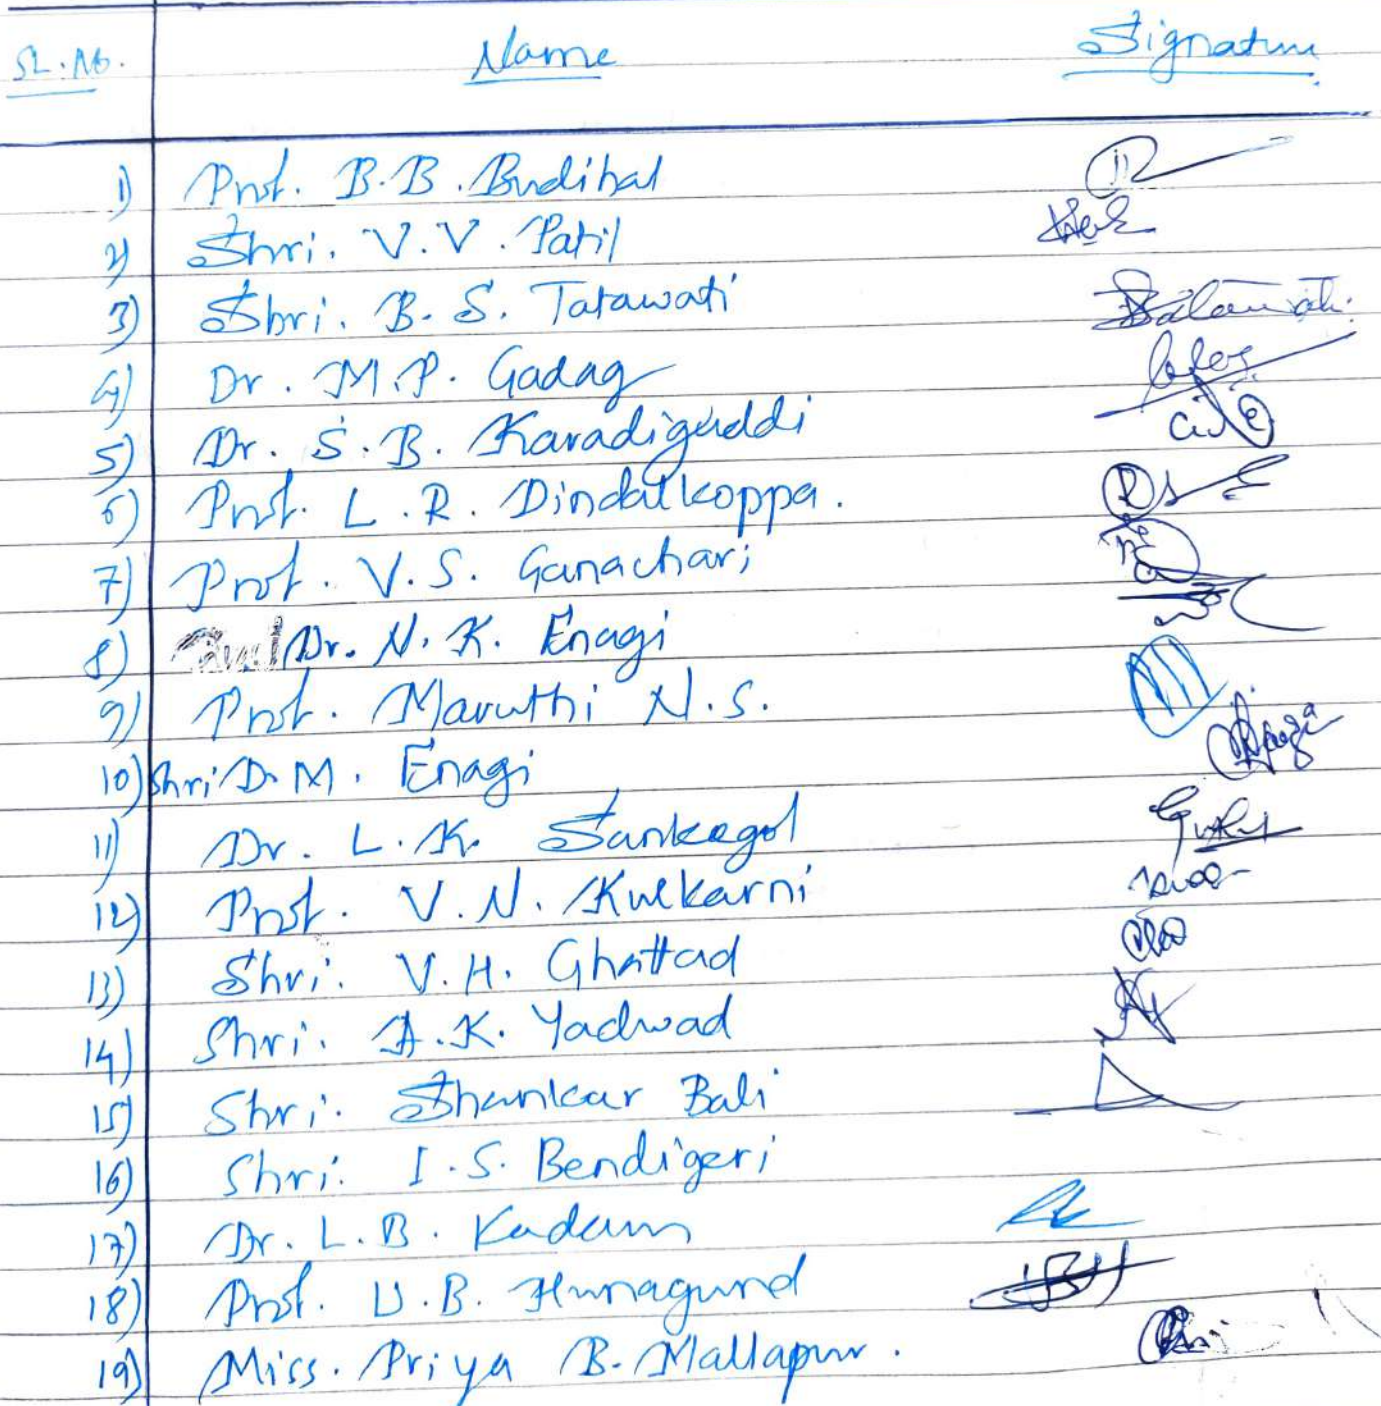 SL.No. Name Signature
1) Prof. B.B. Budihal
2) Shri. V.V. Patil
3) Shri. B.S. Tatawati
4) Dr. M.P. Gadag
5) Dr. S.B. Karadiguddi
6) Prof. L.R. Dindalkoppa.
7) Prof. V.S. Ganachari
8) Dr. N.K. Enagi
9) Prof. Maruthi N.S.
10) Shri D.M. Enagi
11) Dr. L.K. Sankagol
12) Prof. V.N. Kulkarni
13) Shri. V.H. Ghattad
14) Shri. A.K. Yadwad
15) Shri. Shankar Bali
16) Shri. I.S. Bendigeri
17) Dr. L.B. Kadam
18) Prof. U.B. Hunagund
19) Miss. Priya B. Mallapur.